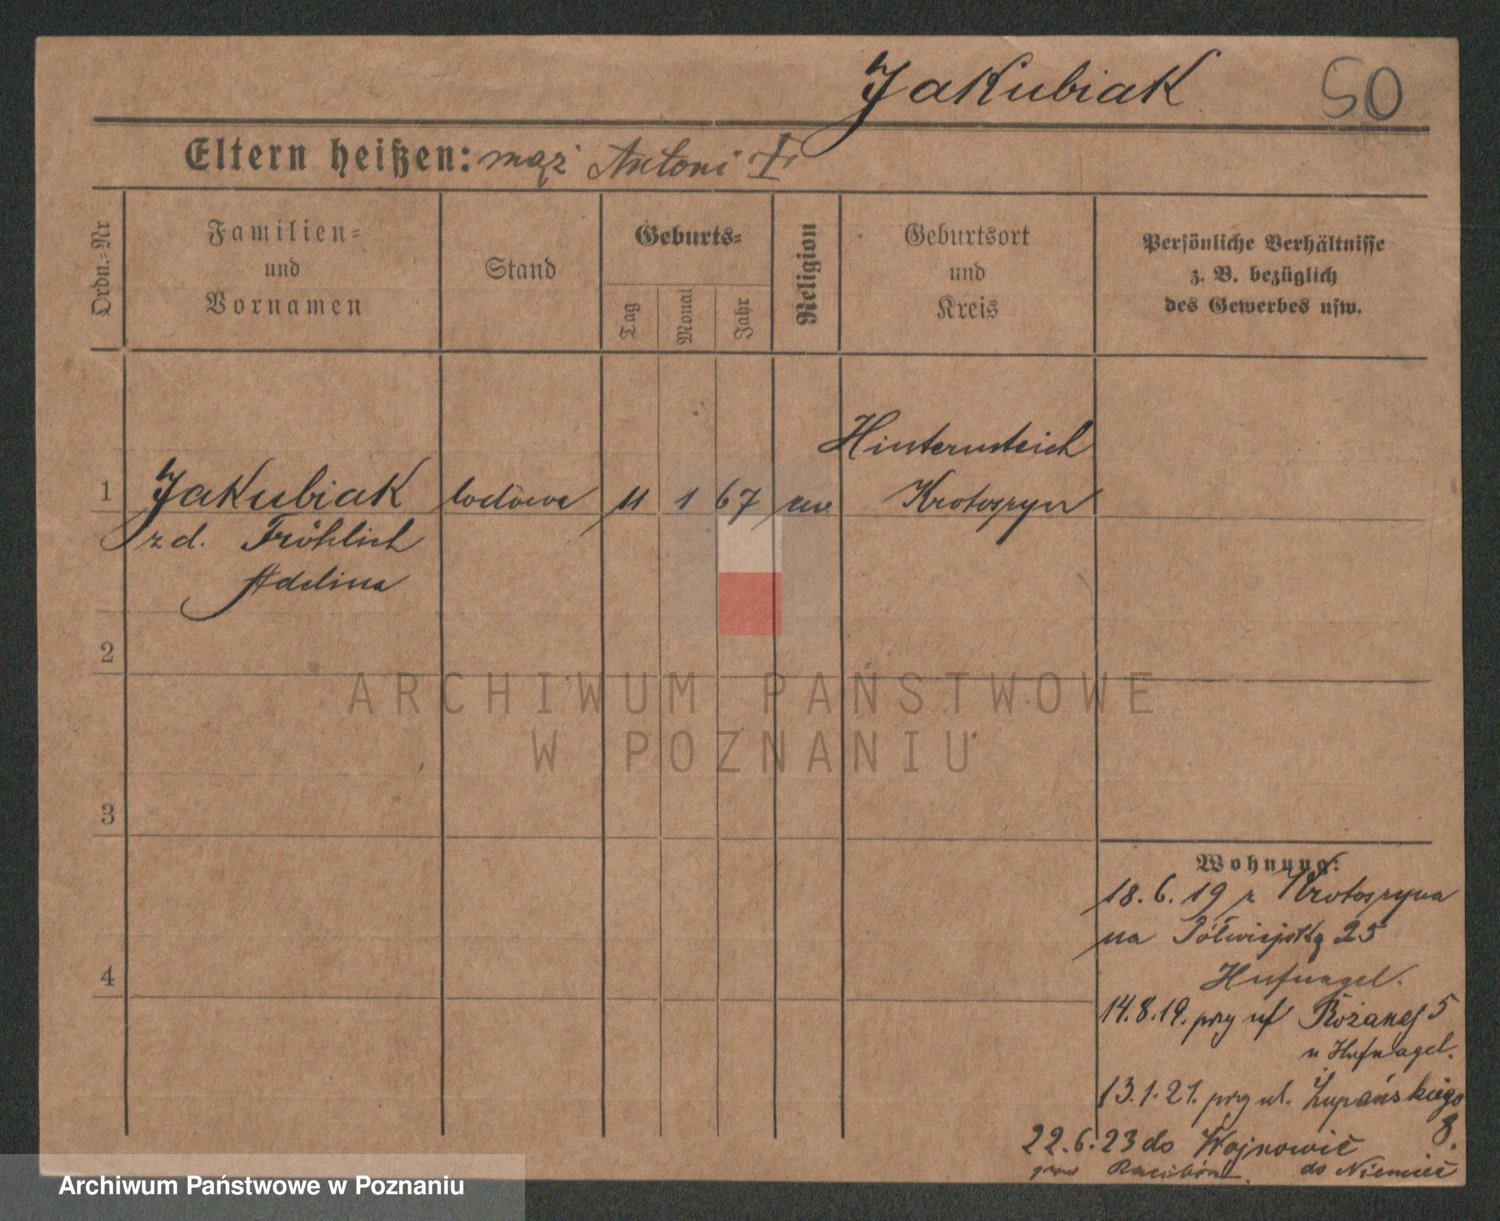 Jakubiak 50
Eltern heißen: mąż Antoni
Ordn.-Nr
Familien-
und
Vornamen
Stand
Geburts-
Tag
Monat
Jahr
Religion
Geburtsort
und
Kreis
Persönliche Verhältnisse
z. B. bezüglich
des Gewerbes usw.
Hinternteich
1 Jakubiak wdowa 11 1 67 ew Krotoszyn
z d. Fröhlich
Adelina
2
ARCHIWUM PAŃSTWOWE
W POZNANIU
3
4
Wohnung:
18.6.19 z Krotoszyna
na Półwiejską 25
Hufnagel.
14.8.19. przy ul Różanej 5
u Hufnagel.
13.1.21. przy ul. Żupańskiego
8.
22.6.23 do Wojnowic
pow Racibórz do Niemiec
Archiwum Państwowe w Poznaniu